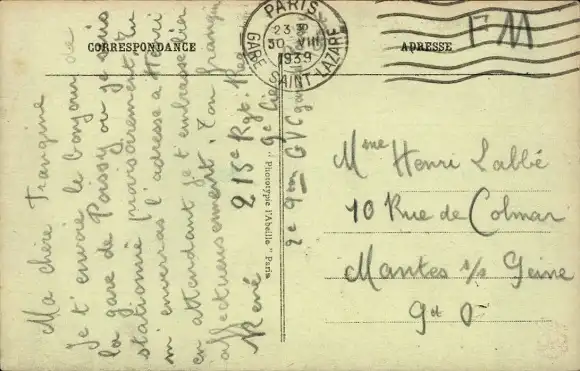 CORRESPONDANCE
ADRESSE
PARIS
23 30
30 VIII
1939
GARE SAINT-LAZARE
FM
Ma chère Frangine
je t'envoie le bonjour de
la gare de Poissy ou je suis
stationné provisoirement. Tu
m'enverras l'adresse a Henri
en attendant je t'embrasse bien
affectueusement. Ton frangin
René
215e Rgt. Reg
9e Cie
2e 9on GVC
"Phototypie l'Abeille" Paris
Mme Henri Labbé
10 Rue de Colmar
Mantes s/s Seine